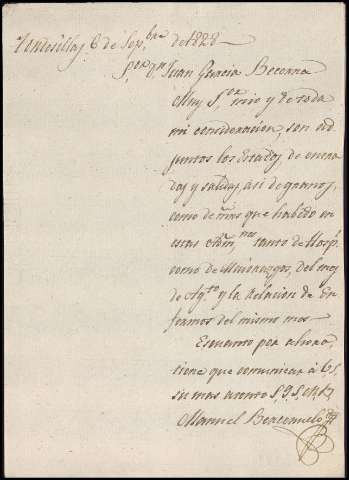 Tordesillas 6 de Sep.bre de 1828
S.or D.n Juan Garcia Becerra
Muy S.or mio y de toda
mi consideracion, son ad
juntos los Estados, de entra
das y salidas, asi de granos,
como de mrs que ha habido en
estas Adm.nes tanto de Hosp.
como de Mayorazgos, del mes
de Ag.to y la Relacion de En
fermos del mismo mes
Es cuanto por ahora,
tiene que comunicar á
su mas atento S. S. S.
Manuel